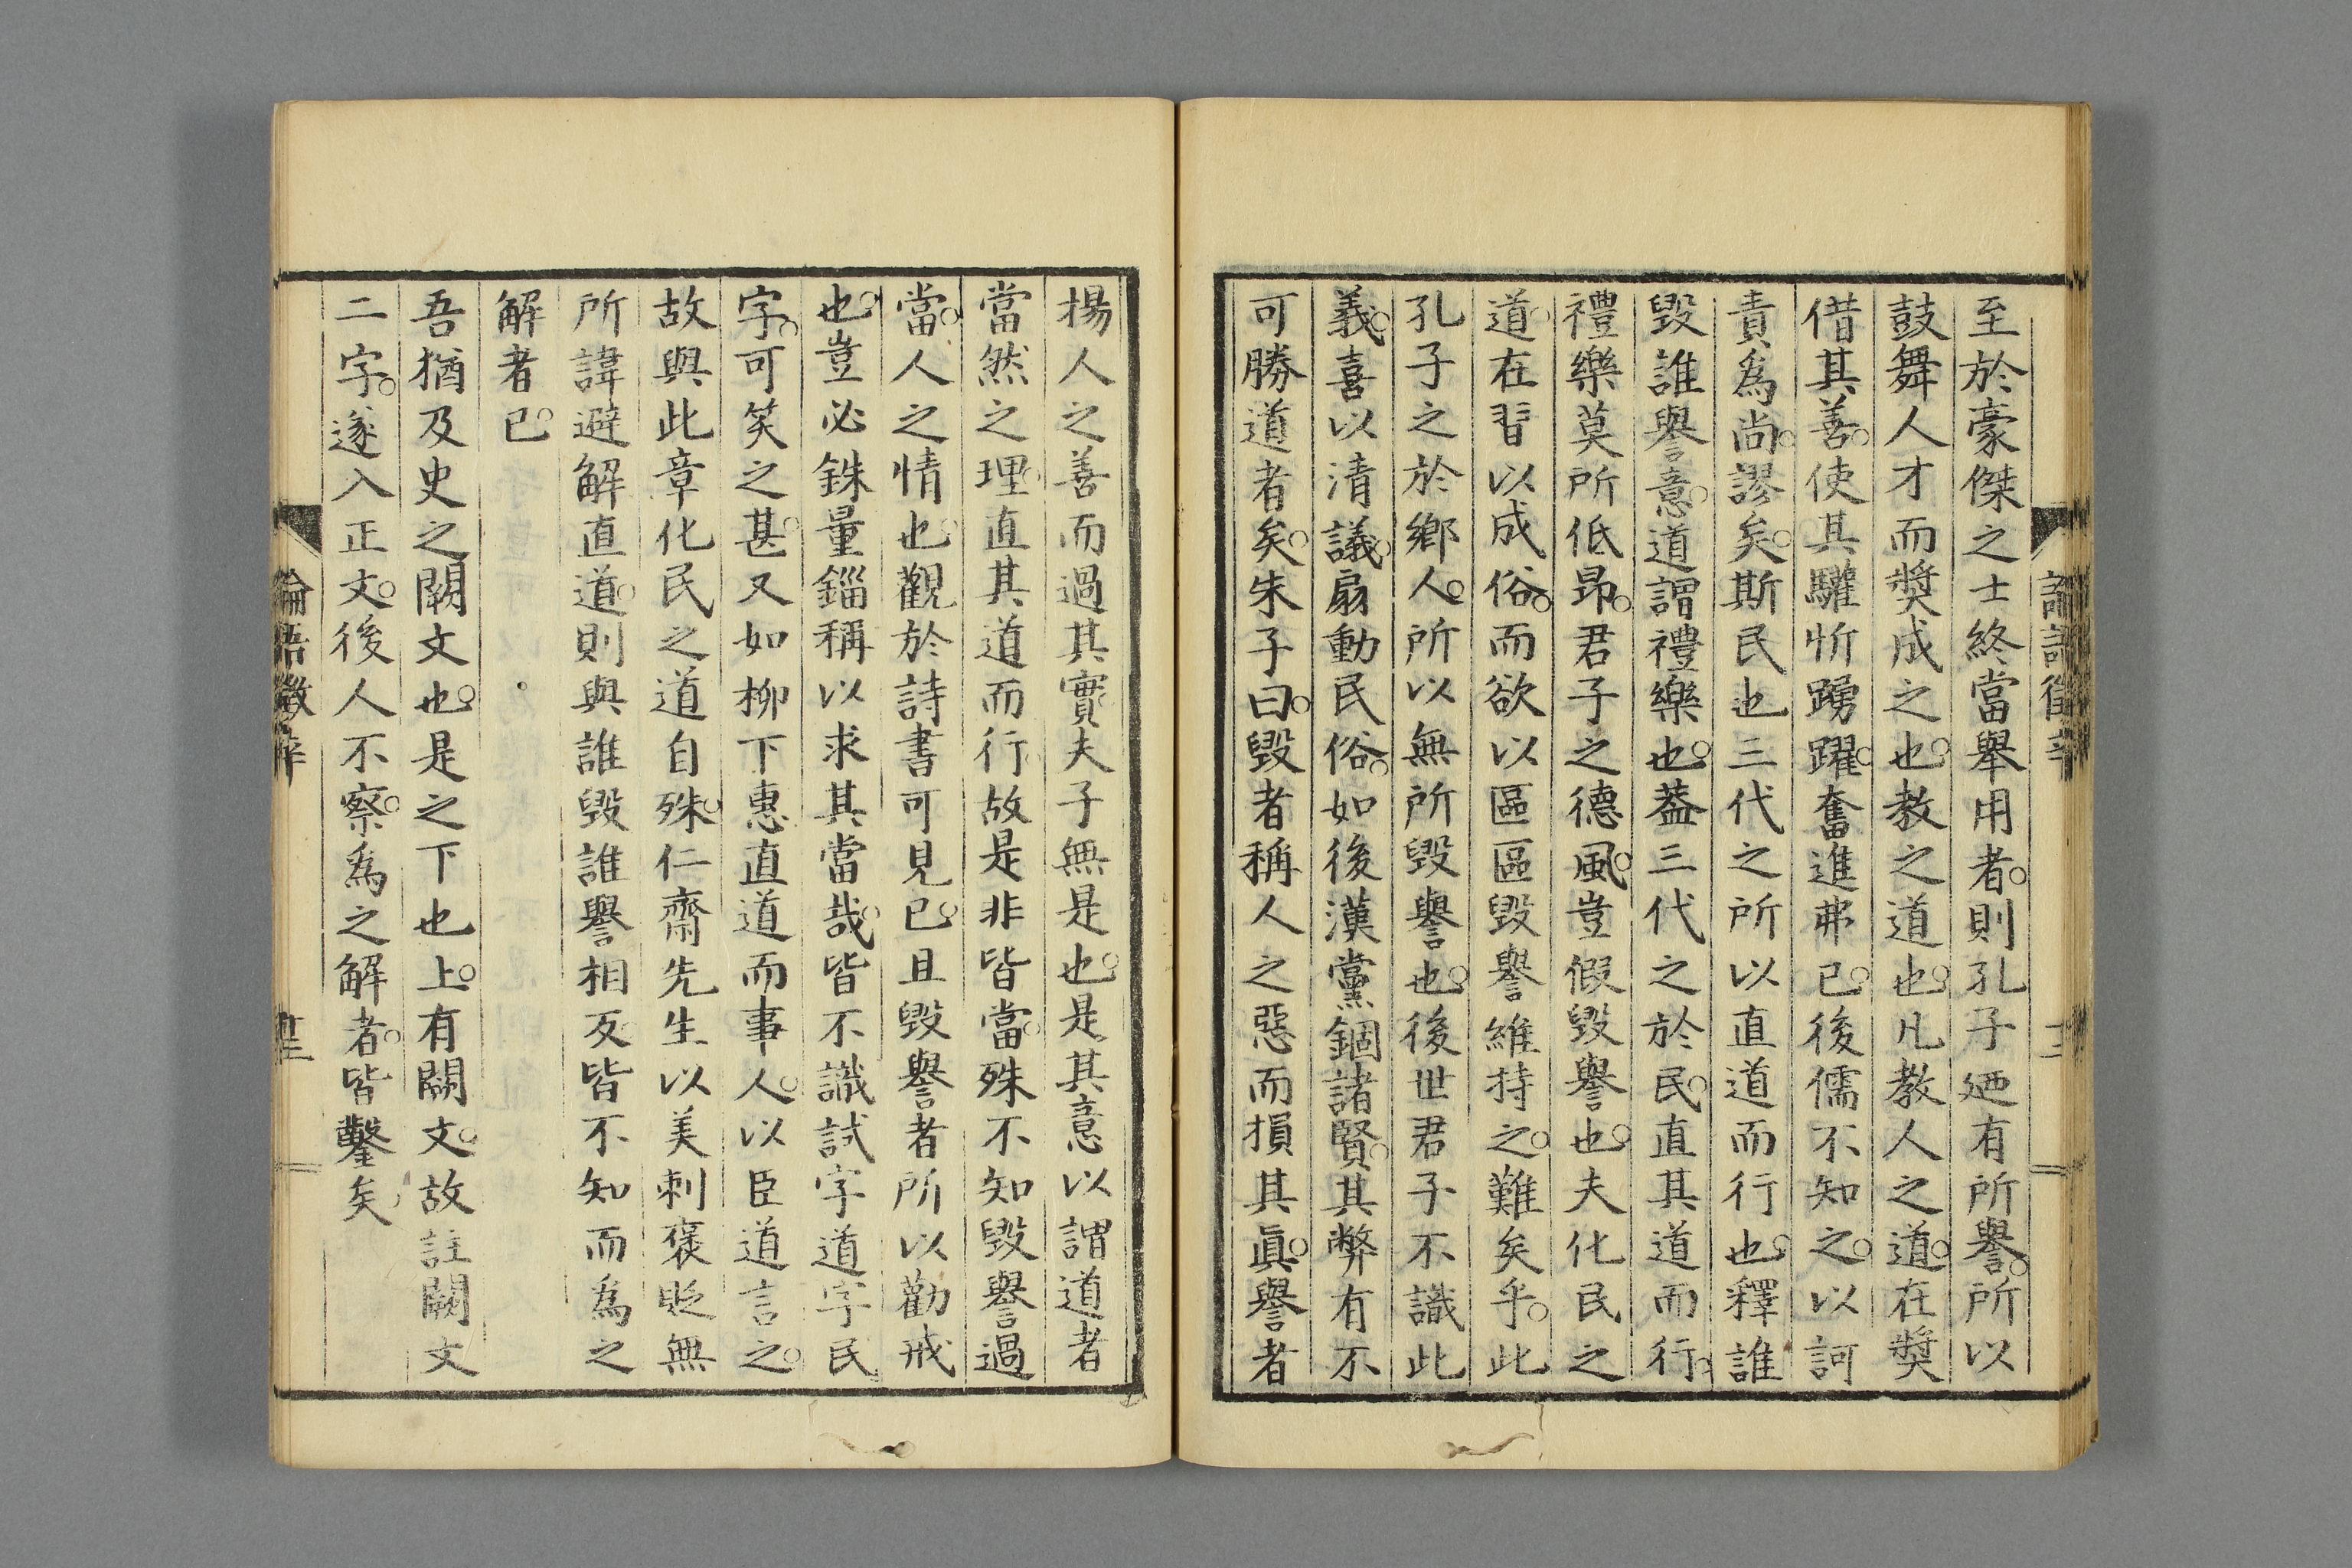 至於豪傑之士終當舉用者則孔子廼有所譽所以
鼓舞人才而奬成之也教之道也凡教人之道在奬
借其善使其驩忻踴躍奮進弗已後儒不知之以訶
責爲尚謬矣斯民也三代之所以直道而行也釋誰
毀誰譽意道謂禮樂也葢三代之於民直其道而行
禮樂莫所低昂君子之德風豈假毀譽也夫化民之
道在習以成俗而欲以區區毀譽維持之難矣乎此
孔子之於鄉人所以無所毀譽也後世君子不識此
義喜以清議扇動民俗如後漢黨錮諸賢其弊有不
可勝道者矣朱子曰毀者稱人之惡而損其眞譽者
揚人之善而過其實夫子無是也是其意以謂道者
當然之理直其道而行故是非皆當殊不知毀譽過
當人之情也觀於詩書可見已且毀譽者所以勸戒
也豈必銖量錙稱以求其當哉皆不識試字道字民
字可笑之甚又如柳下惠直道而事人以臣道言之
故與此章化民之道自殊仁齋先生以美刺褒貶無
所諱避解直道則與誰毀誰譽相反皆不知而爲之
解者已
吾猶及史之闕文也是之下也上有闕文故註闕文
二字遂入正文後人不察爲之解者皆鑿矣
論語徵辛